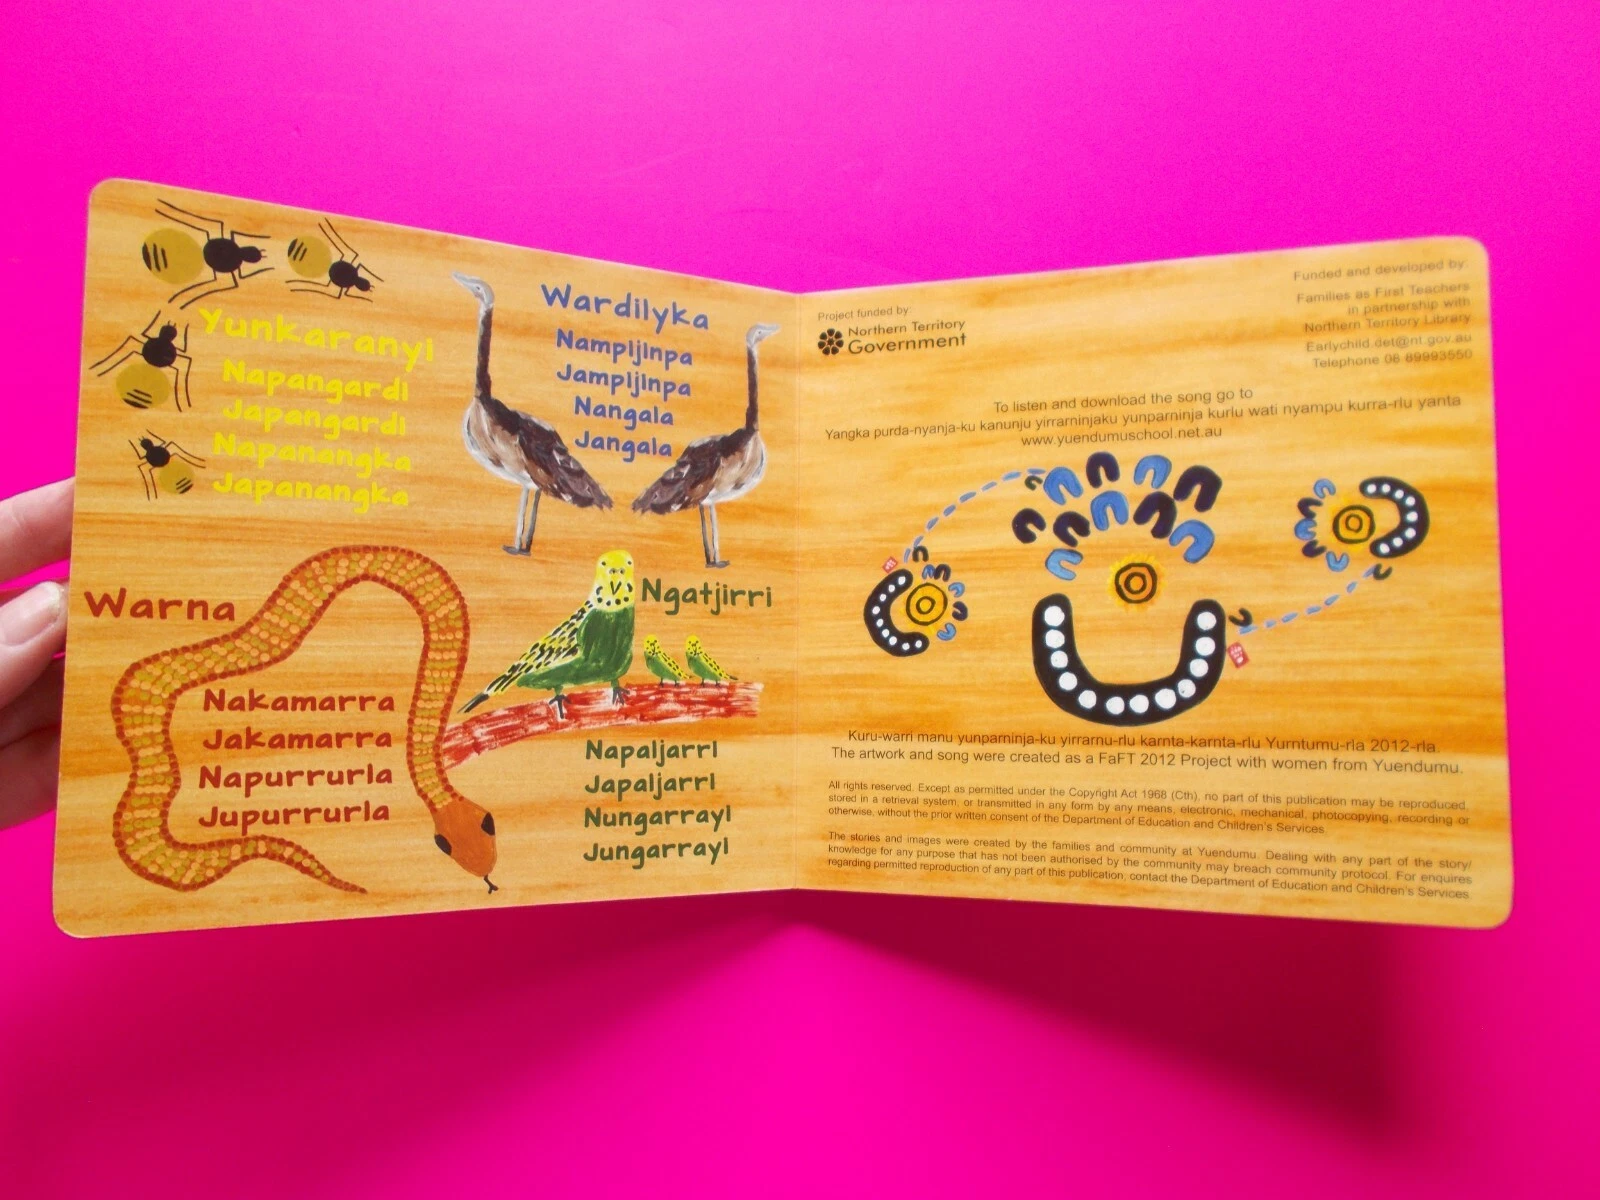 Yunkaranyi
Napangardi
Japangardi
Napanangka
Japanangka
Wardilyka
Nampijinpa
Jampijinpa
Nangala
Jangala
Warna
Nakamarra
Jakamarra
Napurrurla
Jupurrurla
Ngatjirri
Napaljarri
Japaljarri
Nungarrayi
Jungarrayi
Project funded by:
Northern Territory
Government
Funded and developed by:
Families as First Teachers
in partnership with
Northern Territory Library
Earlychild.det@nt.gov.au
Telephone 08 89993550
To listen and download the song go to
Yangka purda-nyanja-ku kanunju yirrarninjaku yunparninja kurlu wati nyampu kurra-rlu yanta
www.yuendumuschool.net.au
Kuru-warri manu yunparninja-ku yirrarnu-rlu karnta-karnta-rlu Yurntumu-rla 2012-rla.
The artwork and song were created as a FaFT 2012 Project with women from Yuendumu.
All rights reserved. Except as permitted under the Copyright Act 1968 (Cth), no part of this publication may be reproduced,
stored in a retrieval system, or transmitted in any form by any means, electronic, mechanical, photocopying, recording or
otherwise, without the prior written consent of the Department of Education and Children's Services.
The stories and images were created by the families and community at Yuendumu. Dealing with any part of the story/
knowledge for any purpose that has not been authorised by the community may breach community protocol. For enquires
regarding permitted reproduction of any part of this publication, contact the Department of Education and Children's Services.